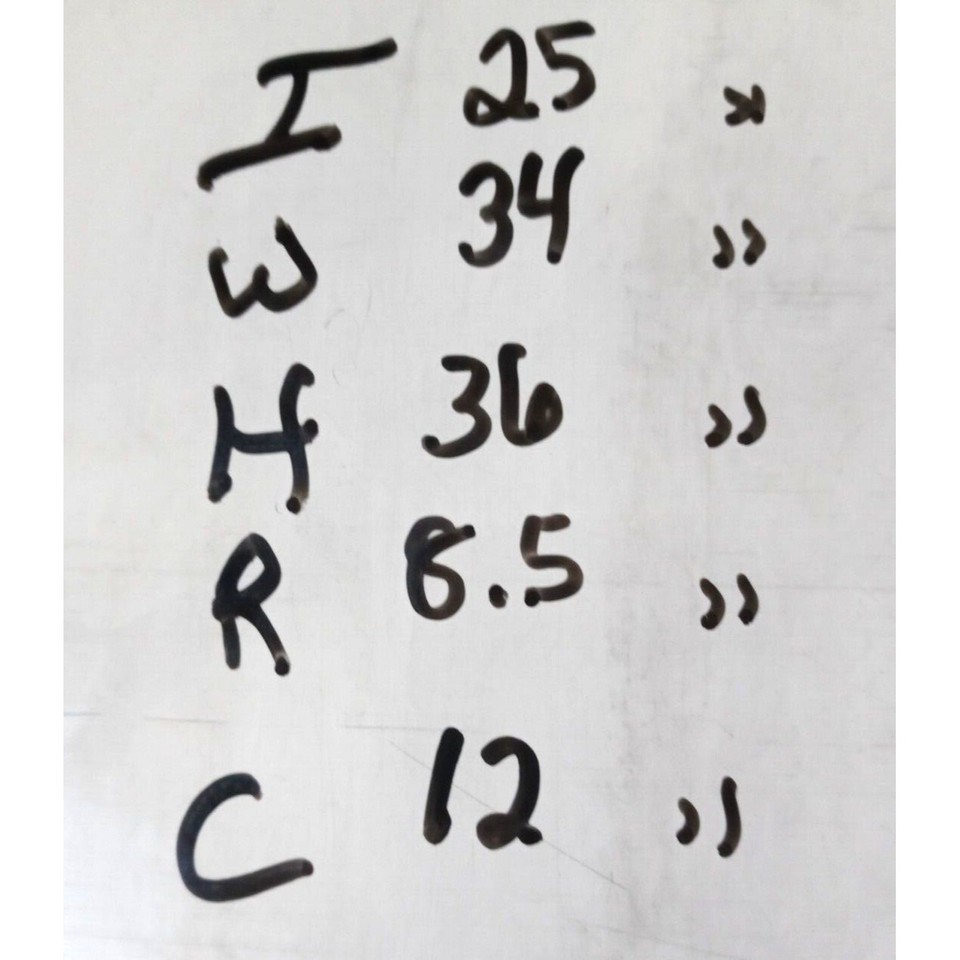 I 25 "
W 34 "
H 36 "
R 8.5 "
C 12 "